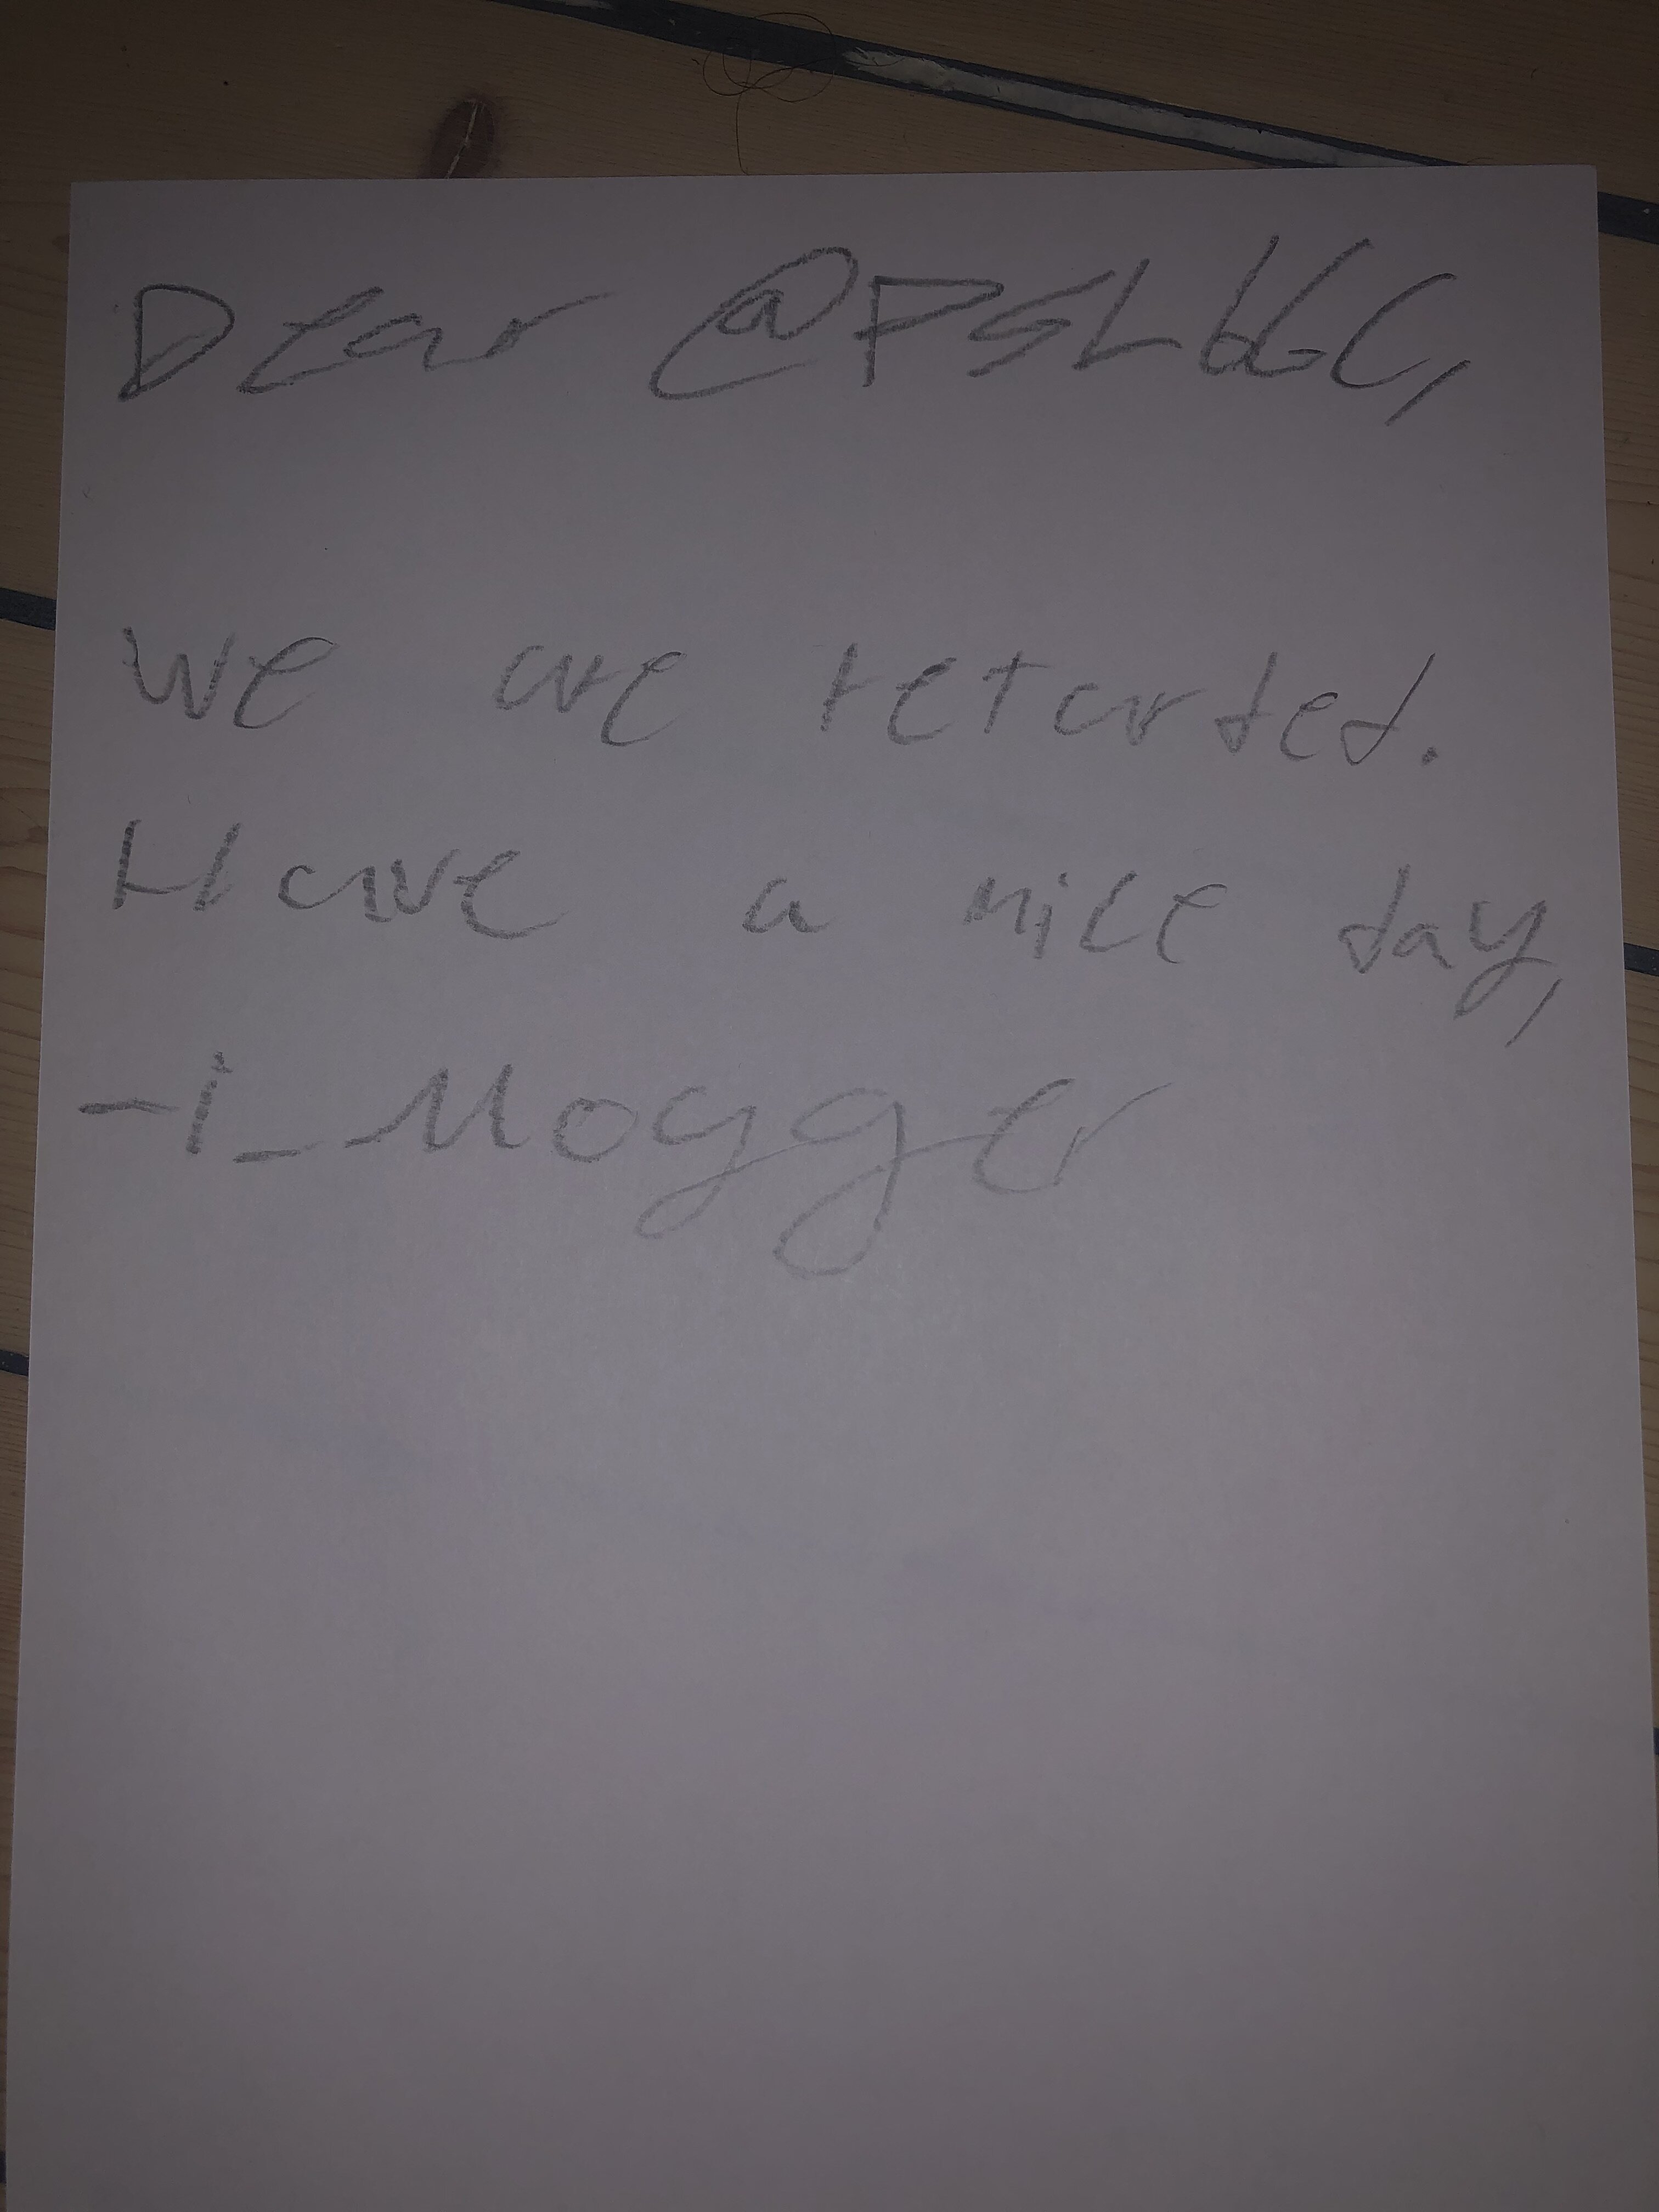 Dear @PSLbbC,
We are retarded.
Have a nice day,
-i_Mogger